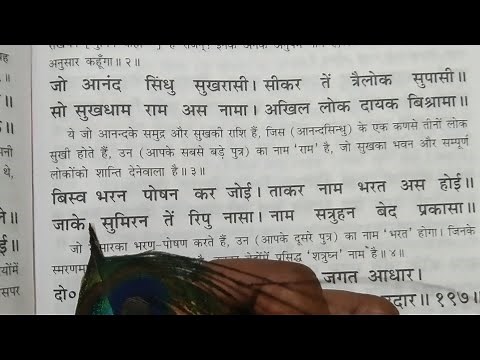 अनुसार कहूँगा॥२॥
जो आनंद सिंधु सुखरासी। सीकर तें त्रैलोक सुपासी॥
सो सुखधाम राम अस नामा। अखिल लोक दायक बिश्रामा॥
ये जो आनन्दके समुद्र और सुखकी राशि हैं, जिस (आनन्दसिन्धु) के एक कणसे तीनों लोक
सुखी होते हैं, उन (आपके सबसे बड़े पुत्र) का नाम 'राम' है, जो सुखका भवन और सम्पूर्ण
लोकोंको शान्ति देनेवाला है॥३॥
बिस्व भरन पोषन कर जोई। ताकर नाम भरत अस होई॥
जाके सुमिरन तें रिपु नासा। नाम सत्रुहन बेद प्रकासा॥
जो संसारका भरण-पोषण करते हैं, उन (आपके दूसरे पुत्र) का नाम 'भरत' होगा। जिनके
प्रसिद्ध 'शत्रुघ्न' नाम है॥४॥
दो० जगत आधार।
१९७॥